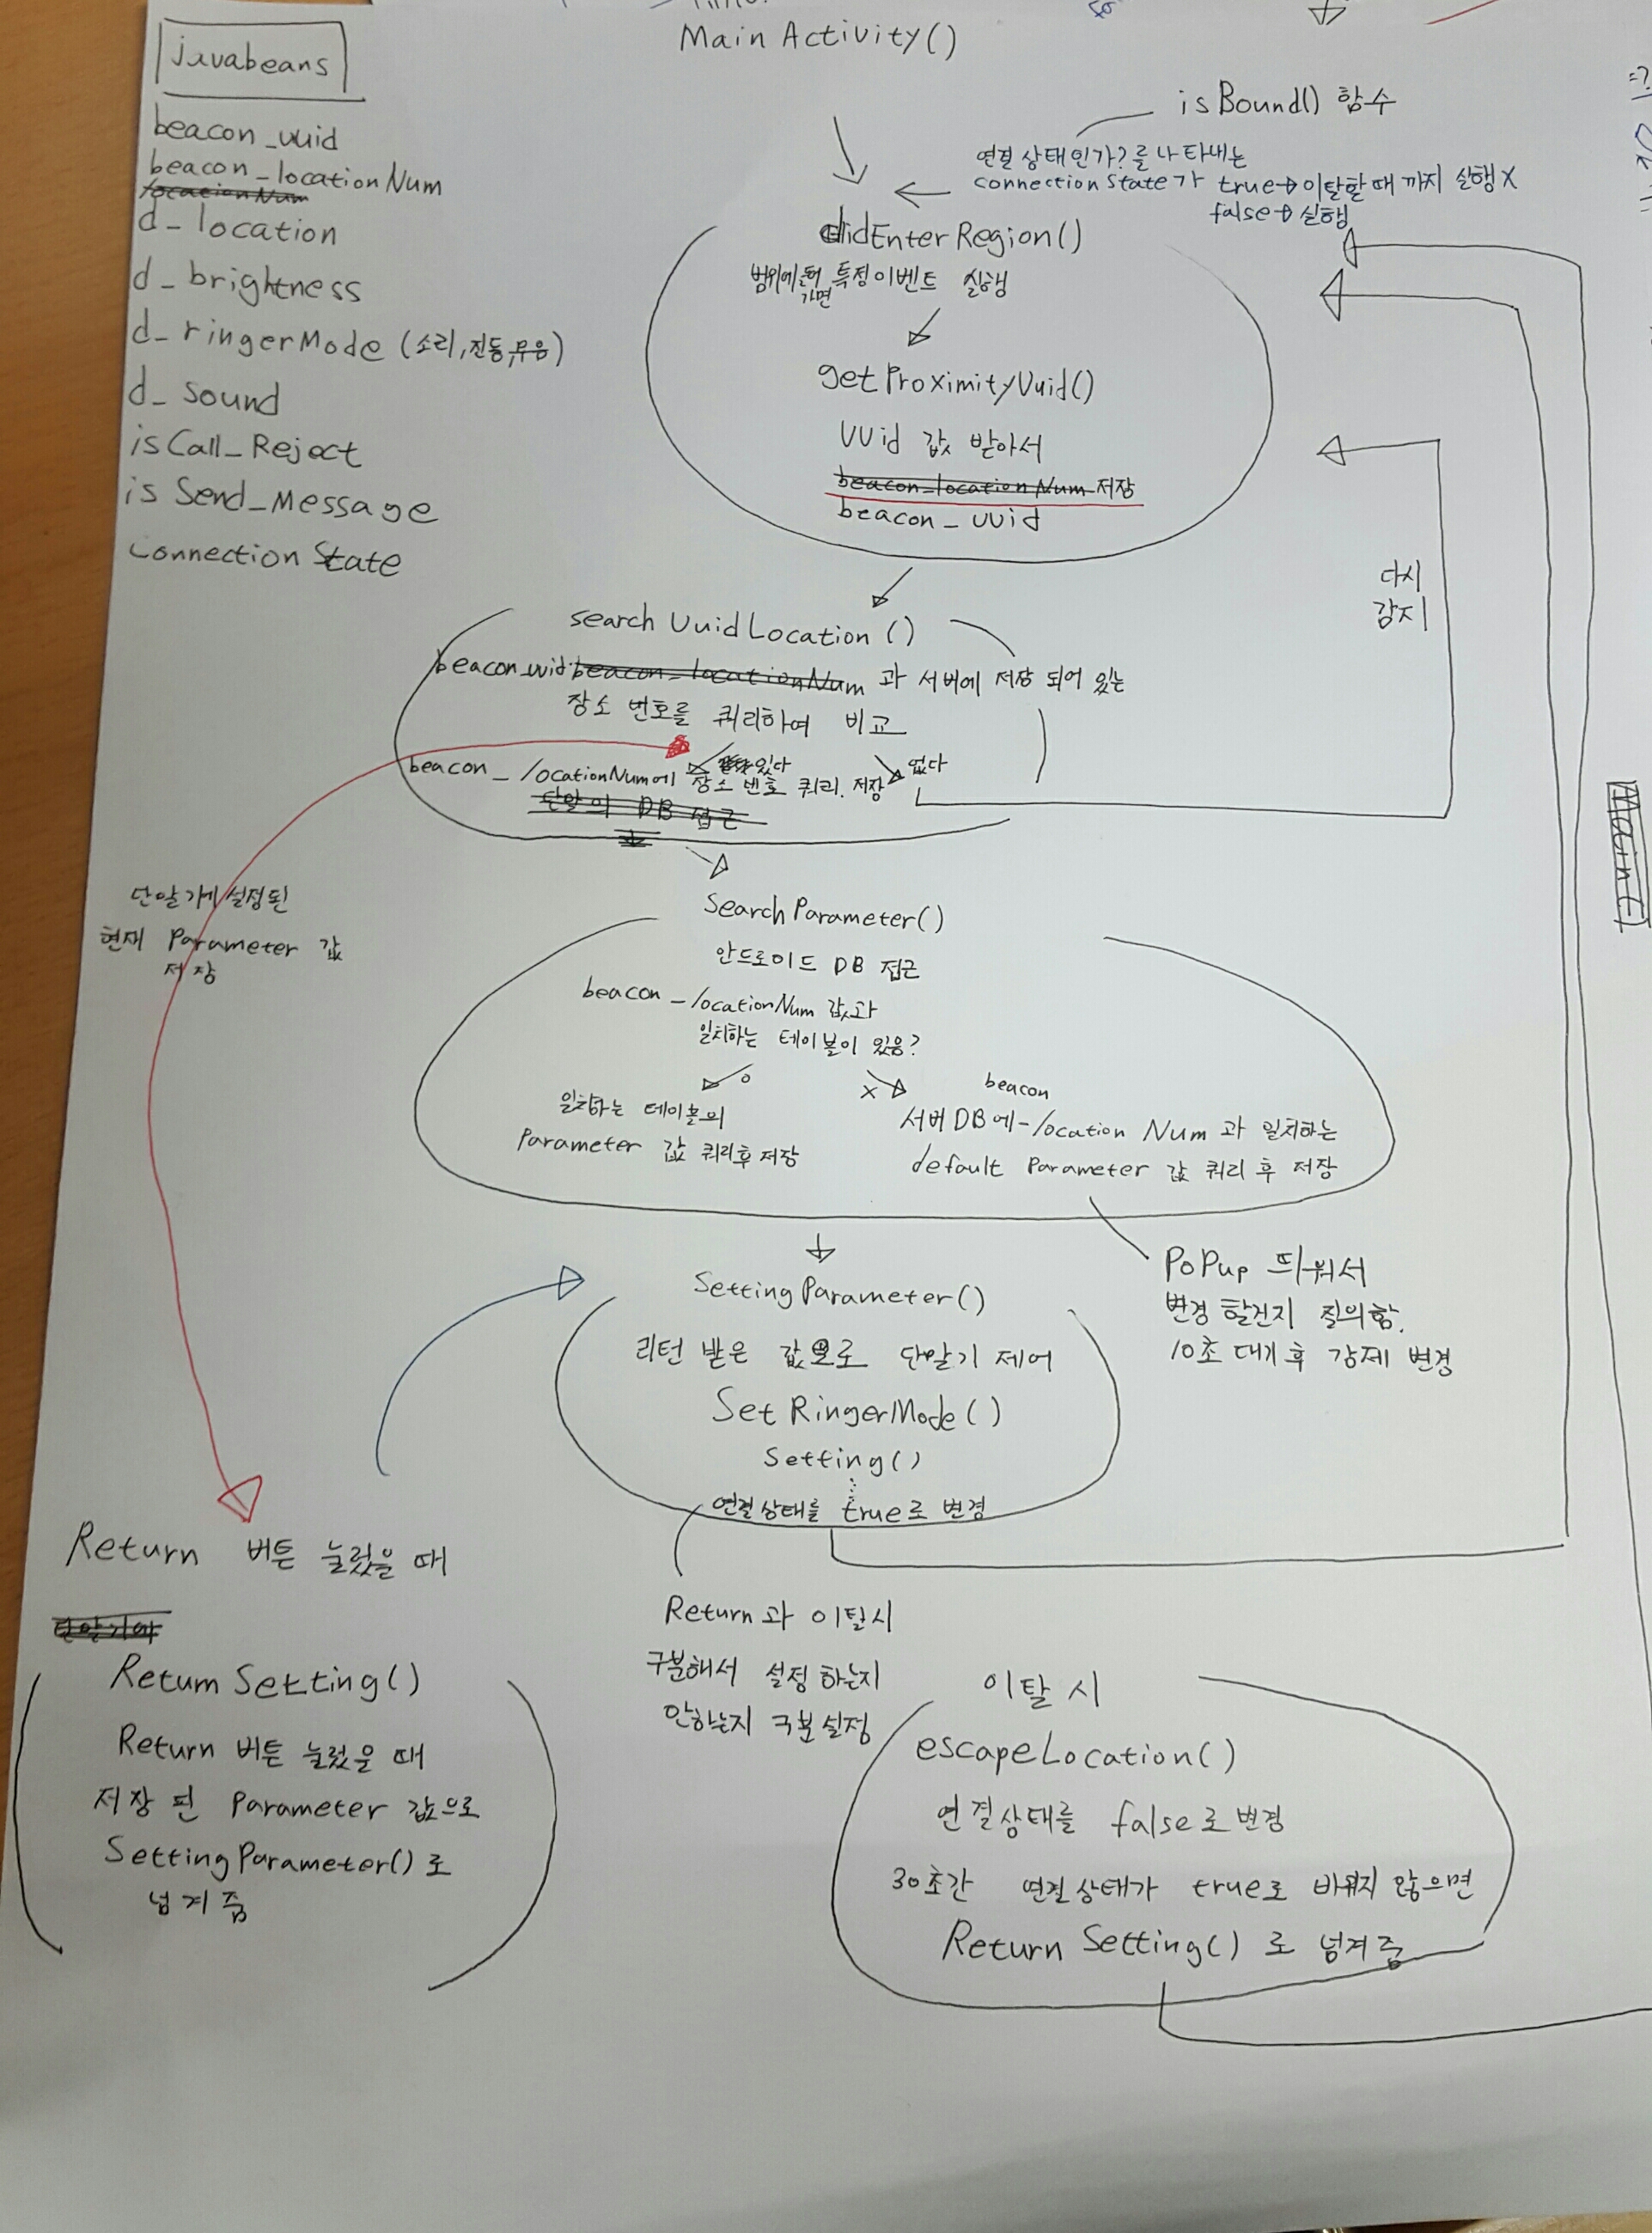 Main Activity()
javabeans
beacon_uuid
beacon_locationNum
locationNum
d_location
d_brightness
d_ringerMode (소리,진동,무음)
d_sound
isCall_Reject
is Send_Message
Connection State
isBound() 함수
연결 상태인가?를 나타내는
connectionState가 true→이탈할때 까지 실행X
false→실행
didEnterRegion()
범위에 들어가면 특정이벤트 실행
getProximityUuid()
UUid 값 받아서
beacon_locationNum 저장
beacon_uuid
다시
감지
search UuidLocation()
beacon_uuid beacon_locationNum 과 서버에 저장 되어 있는
장소 번호를 쿼리하여 비교
있다
없다
beacon_locationNum에 장소 번호 쿼리. 저장
단말의 DB 접근
단말기에 설정된
현재 Parameter 값
저장
Search Parameter()
안드로이드 DB 접근
beacon_locationNum 값과
일치하는 테이블이 있음?
o
x
일치하는 테이블의
Parameter 값 쿼리후 저장
beacon
서버DB에 _location Num 과 일치하는
default Parameter 값 쿼리 후 저장
PoPup 띄워서
변경 할건지 질의함.
10초 대기 후 강제 변경
Setting Parameter()
리턴 받은 값으로 단말기 제어
Set RingerMode()
Setting()
연결상태를 true로 변경
Return 버튼 눌렀을 때
단말기에
Return Setting()
Return 버튼 눌렀을 때
저장 된 Parameter 값으로
Setting Parameter()로
넘겨 줌
Return과 이탈시
구분해서 설정 하는지
안하는지 구분 설정
이탈 시
escapeLocation()
연결상태를 false로 변경
30초간 연결상태가 true로 바뀌지 않으면
Return Setting()로 넘겨줌
Main()